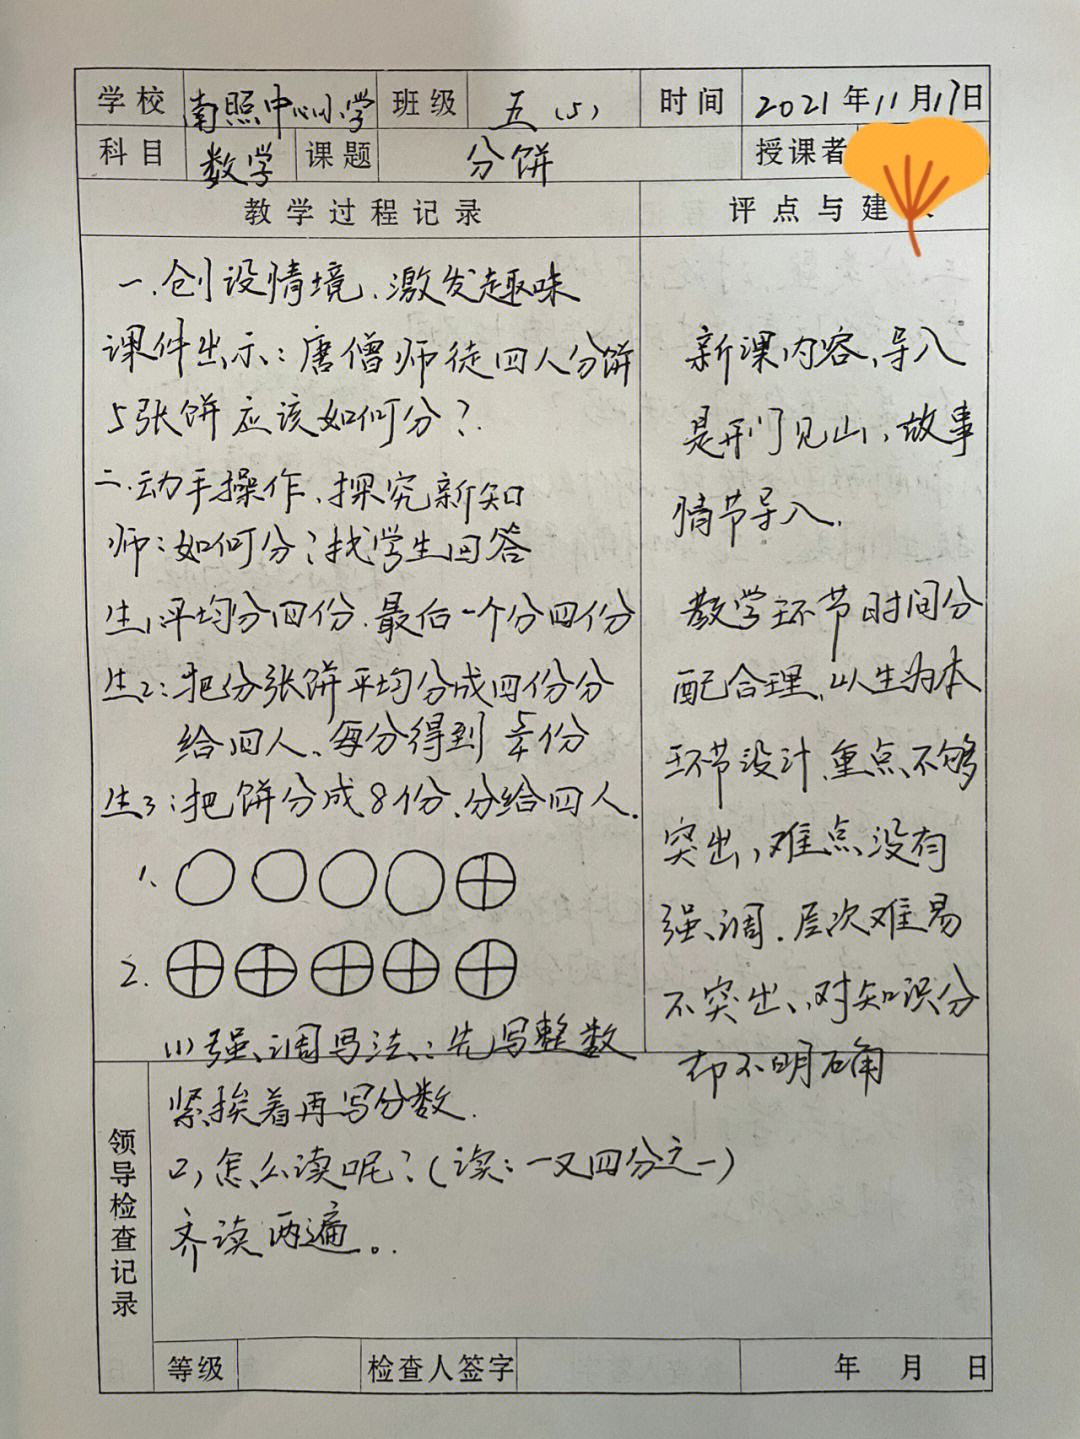 学校 南照中心小学 班级 五(5) 时间 2021年11月17日
科目 数学 课题 分饼 授课者
教学过程记录 评点与建
一、创设情境、激发趣味
课件出示：唐僧师徒四人分饼
5张饼应该如何分？
二、动手操作、探究新知
师：如何分？找学生回答
生1平均分四份、最后一个分四份
生2：把份张饼平均分成四份分
给四人、每分得到 份
生3：把饼分成8份、分给四人.
1、
2.
(1)强调写法：先写整数
紧挨着再写分数.
2)怎么读呢？(读：一又四分之一)
齐读两遍。
新课内容、导入
是开门见山、故事
情节导入.
教学环节时间分
配合理、以生为本
环节设计、重点不够
突出，难点没有
强调.层次难易
不突出、对知识分
却不明确
领导检查记录
等级 检查人签字 年 月 日